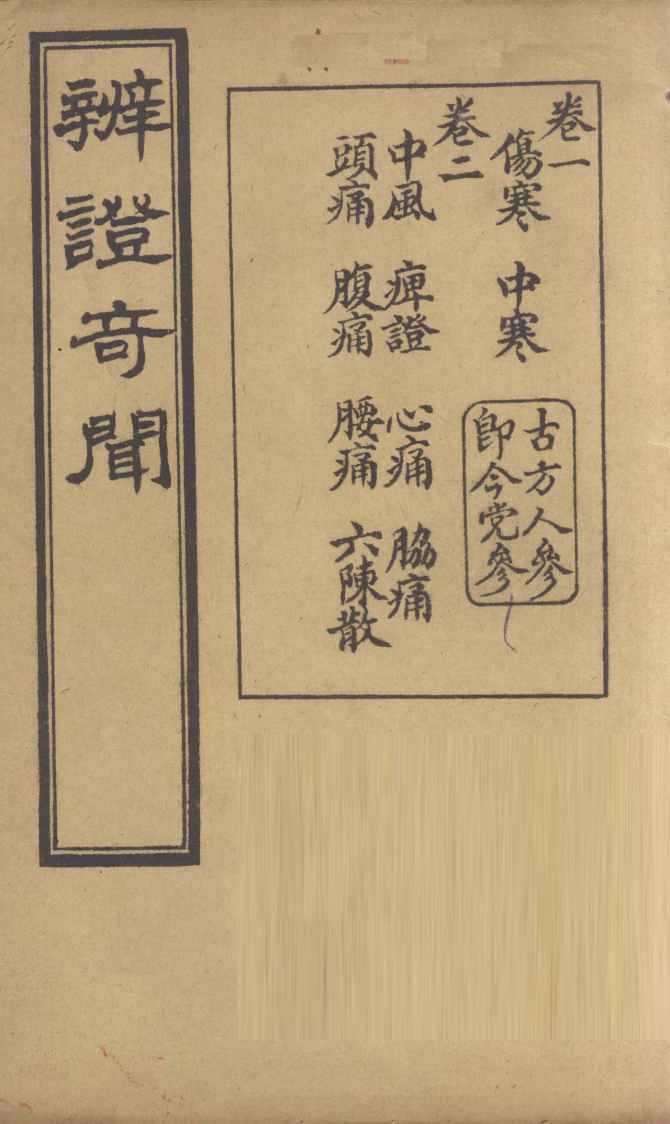 卷一
傷寒 中寒
古方人參
卽今党參
卷二
中風 痺證 心痛 脇痛
頭痛 腹痛 腰痛 六陳散
辨證奇聞